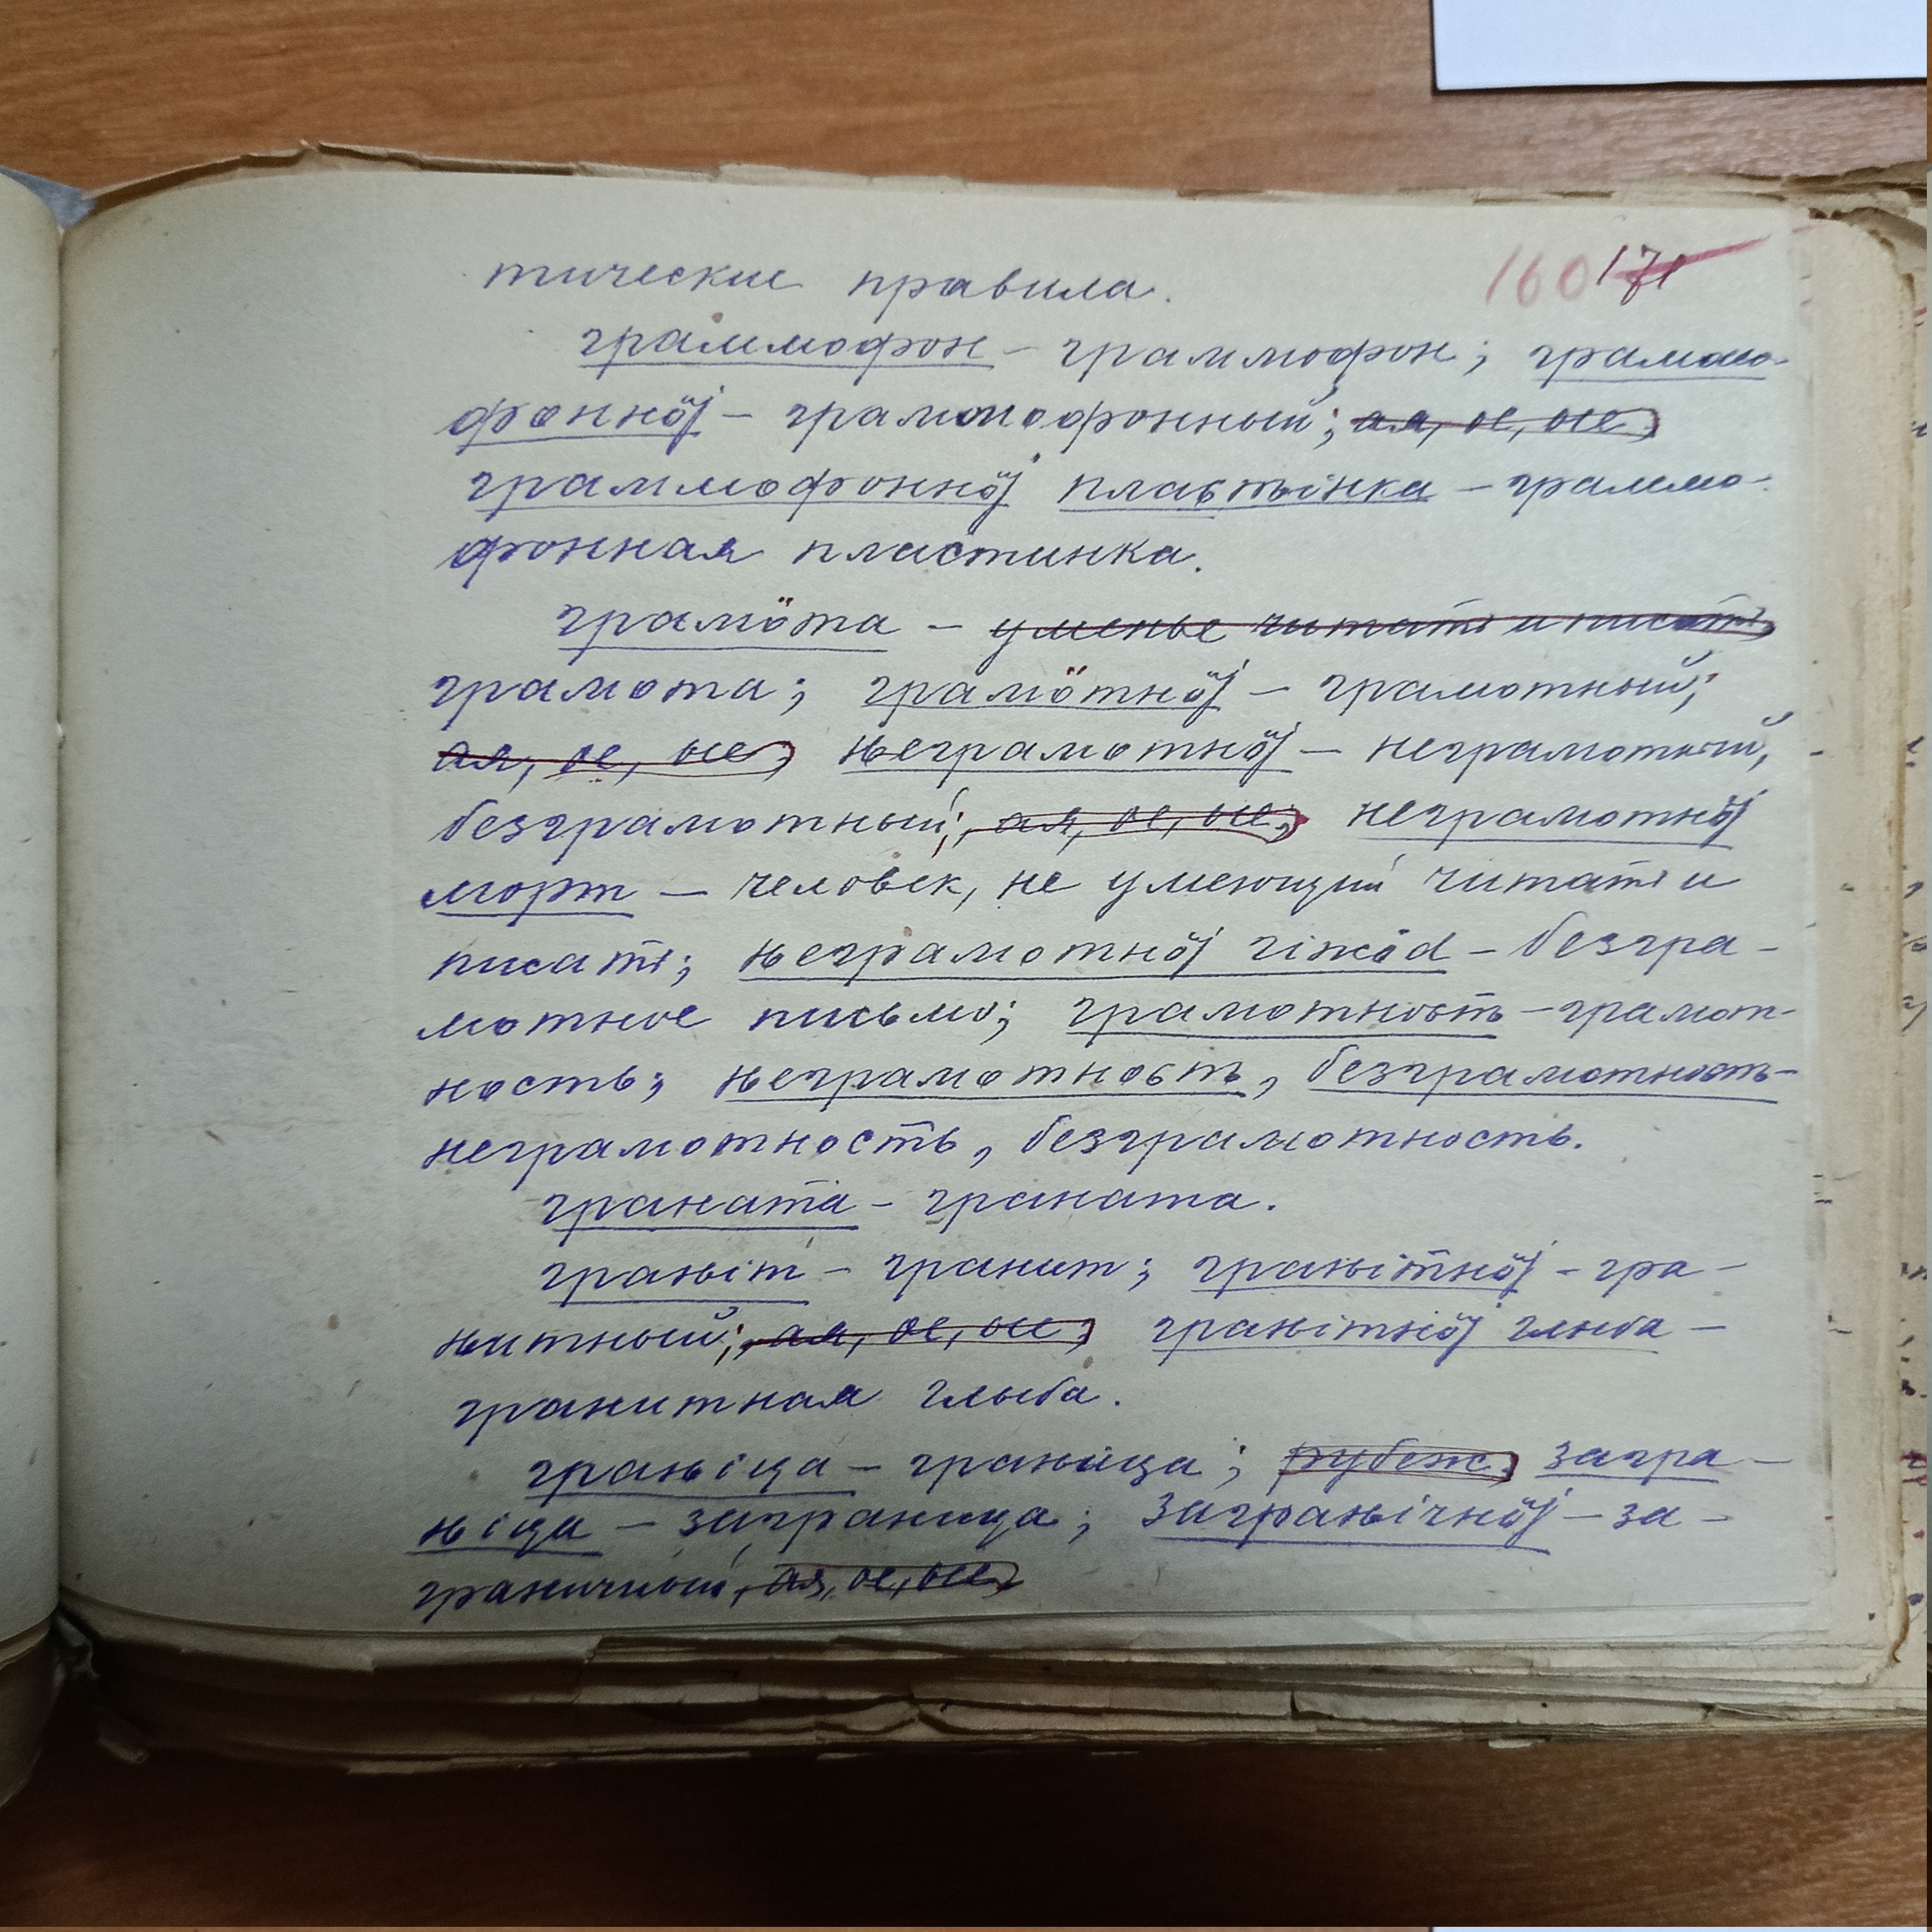 160 171
тические правила.
граммофон – граммофон; граммо-
фоннӧј – граммофонный; ая, ое, ые;
граммофоннӧј плаԍтԋінка – граммо-
фонная пластинка.
грамӧта – уменье читать и писать,
грамота; грамӧтнӧј – грамотный;
ая, ое, ые; ԋеграмотнӧј – неграмотный,
безграмотный; ая, ое, ые; ԋеграмотнӧј
морт – человек, не умеющий читать и
писать; ԋеграмотнӧј гіжӧd – безгра-
мотное письмо; грамотноԍть – грамот-
ность; ԋеграмотноԍть, безграмотноԍть –
неграмотность, безграмотность.
граната – граната.
граԋіт – гранит; граԋітнӧј – гра-
нитный; ая, ое, ые; граԋітнӧј глыба –
гранитная глыба.
граԋіца – граница; рубеж; загра-
ԋіца – заграница; заграԋічнӧј – за-
граничный, ая, ое, ые;